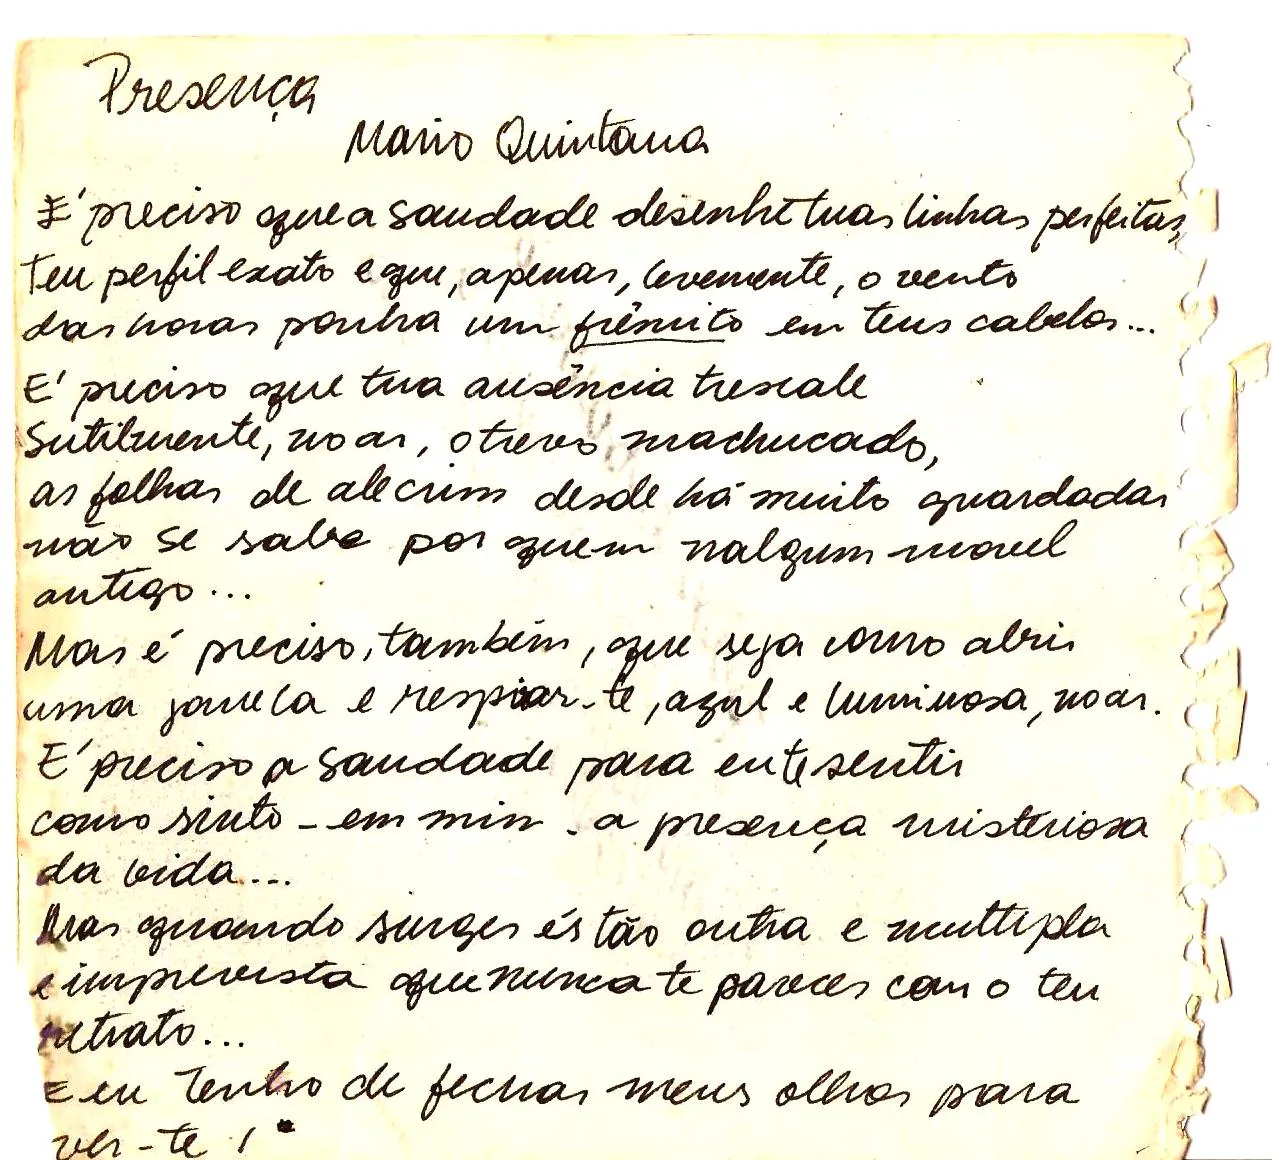 Presença
Mario Quintana
É preciso que a saudade desenhe tuas linhas perfeitas,
teu perfil exato e que, apenas, levemente, o vento
das horas ponha um frêmito em teus cabelos...
É preciso que tua ausência trescale
Sutilmente, no ar, o trevo machucado,
as folhas de alecrim desde há muito guardadas
não se sabe por quem nalgum movel
antigo...
Mas é preciso, também, que seja como abrir
uma janela e respirar-te, azul e luminosa, no ar.
É preciso a saudade para eu te sentir
como sinto - em mim - a presença misteriosa
da vida...
Mas quando surges és tão outra e multipla
e imprevista que nunca te pareces com o teu
retrato...
E eu tenho de fechar meus olhos para
ver-te!